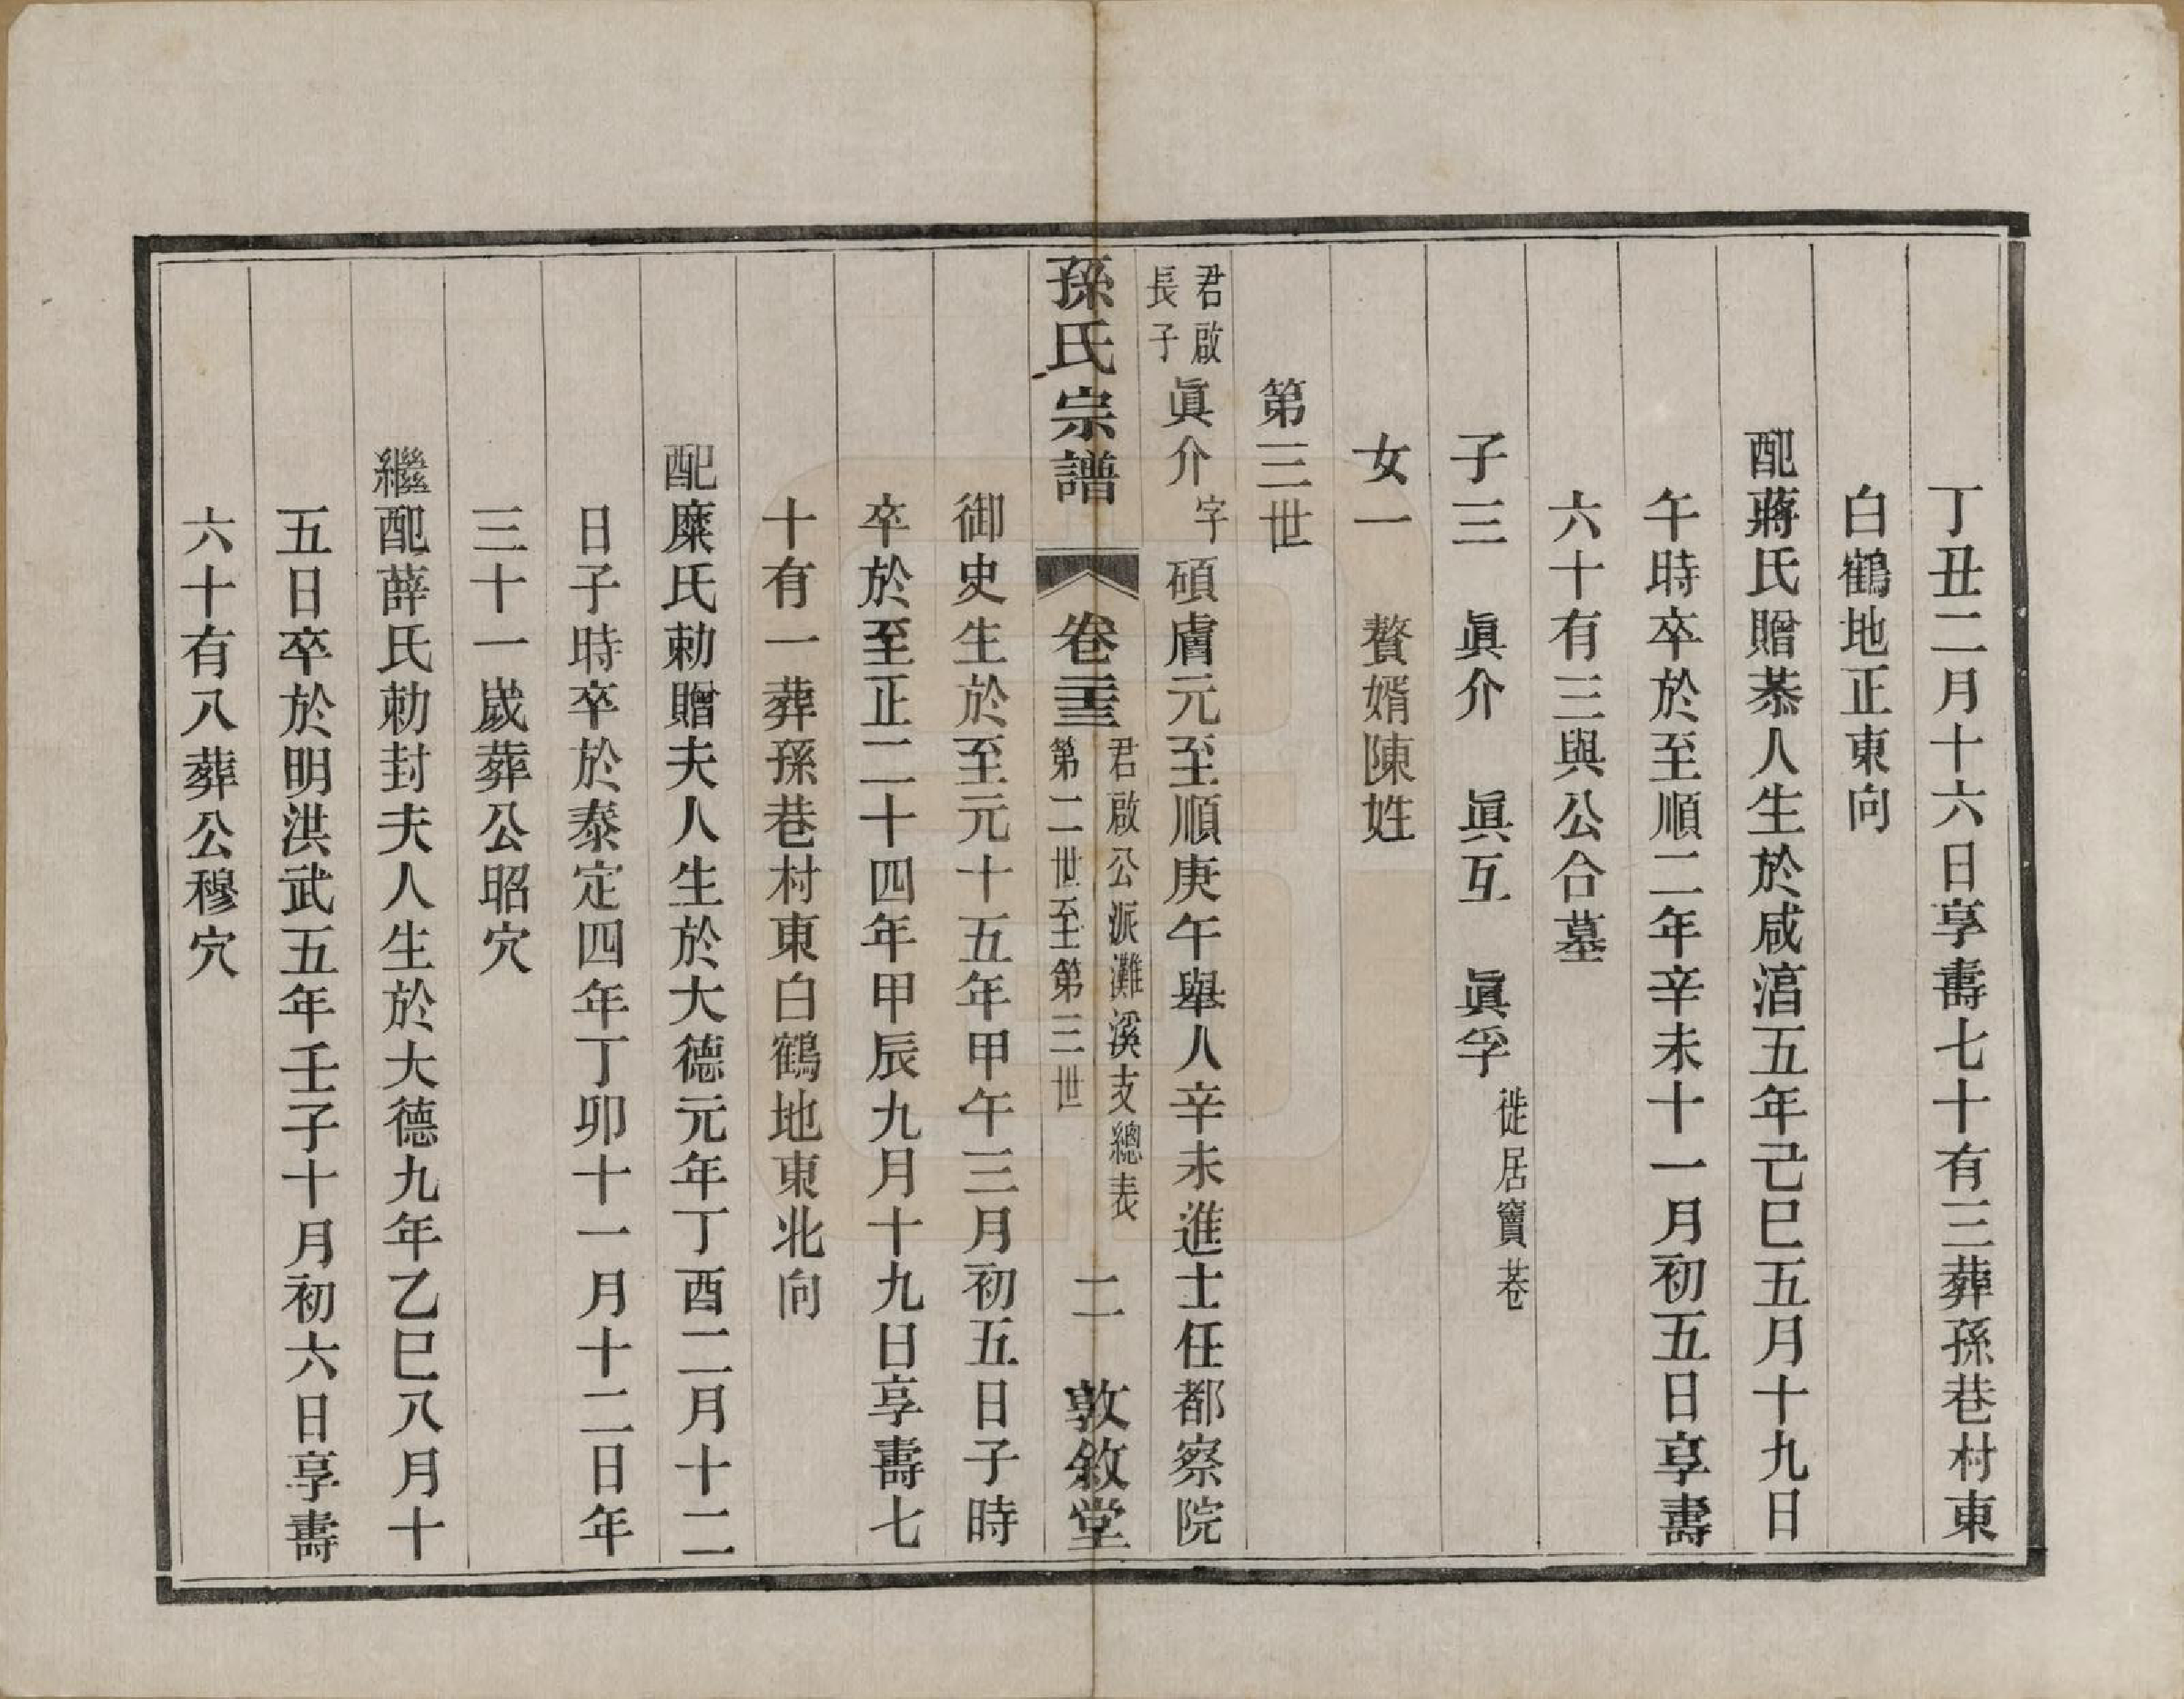 丁丑二月十六日享壽七十有三葬孫巷村東
白鶴地正東向
配蔣氏贈恭人生於咸湻五年己巳五月十九日
午時卒於至順二年辛未十一月初五日享壽
六十有三與公合墓
子三　眞介　眞互　眞孚徙居竇巷
女一　贅婿陳姓
第三世
君啟長子眞介字碩膚元至順庚午舉人辛未進士任都察院
孫氏宗譜　卷三十三　君啟公派灘溪支總表　第二世至第三世　二　敦敘堂
御史生於至元十五年甲午三月初五日子時
卒於至正二十四年甲辰九月十九日享壽七
十有一葬孫巷村東白鶴地東北向
配糜氏勅贈夫人生於大德元年丁酉二月十二
日子時卒於泰定四年丁卯十一月十二日年
三十一歲葬公昭穴
繼配薛氏勅封夫人生於大德九年乙巳八月十
五日卒於明洪武五年壬子十月初六日享壽
六十有八葬公穆穴